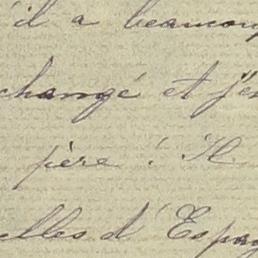 'il a beaucoup
changé et j'es
père ! Il
elles d'Espag